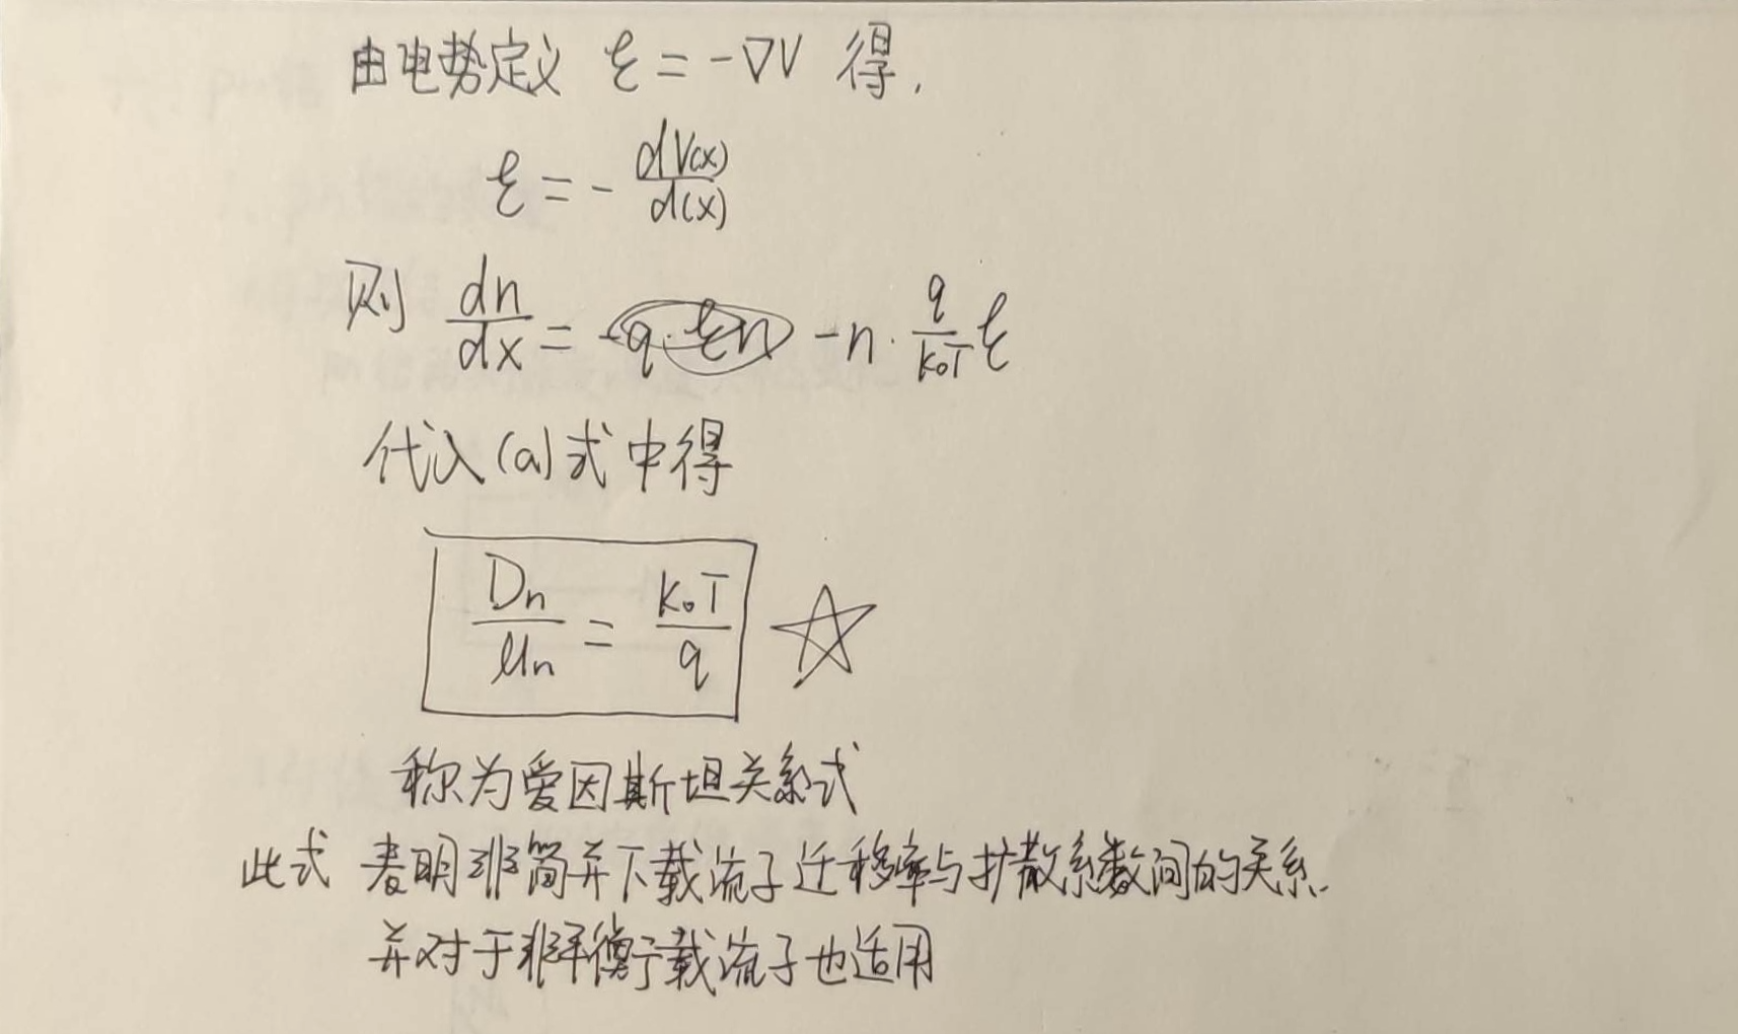 由电势定义 ℰ = -∇V 得,
ℰ = - dV(x)/d(x)
则 dn/dx = -n · q/k₀T ℰ
代入(a)式中得
Dn/μn = k₀T/q ☆
称为爱因斯坦关系式
此式 表明非简并下载流子迁移率与扩散系数间的关系.
并对于非平衡载流子也适用